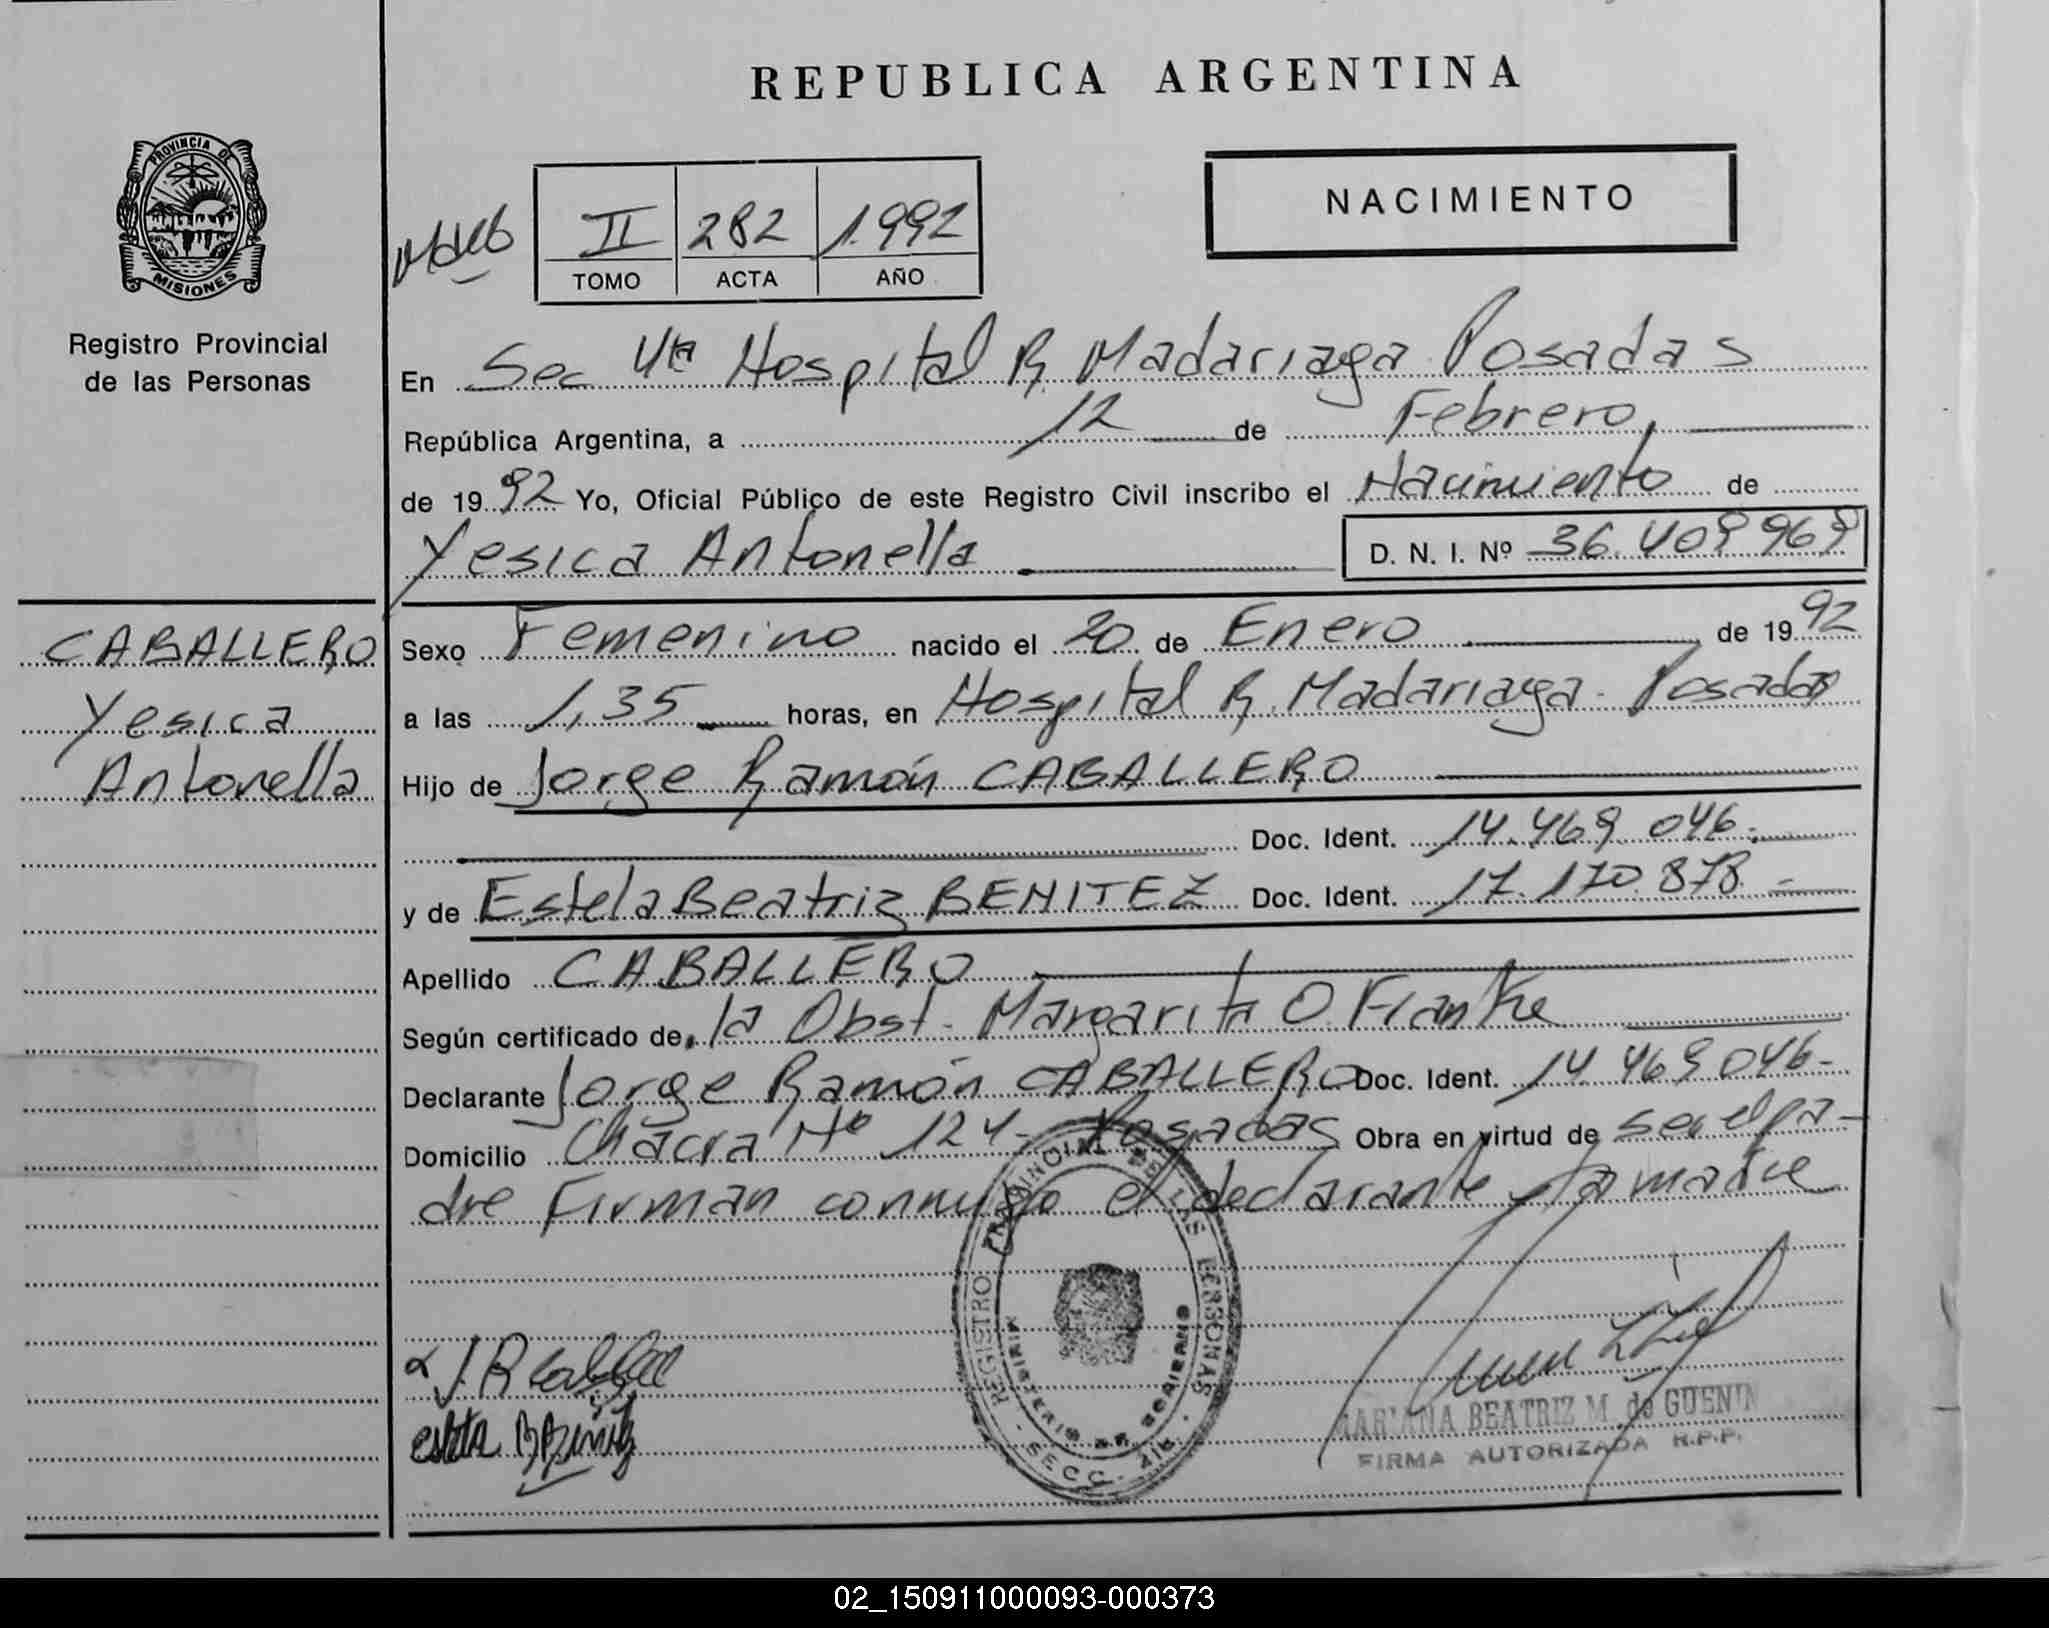 REPUBLICA ARGENTINA
PROVINCIA DE
MISIONES
Registro Provincial
de las Personas
NACIMIENTO
II 282 1.992
TOMO ACTA AÑO
En Sec 4ta Hospital R. Madariaga Posadas
República Argentina, a 12 de Febrero
de 1992 Yo, Oficial Público de este Registro Civil inscribo el Nacimiento de
Yesica Antonella D. N. I. Nº 36.409969
CABALLERO
Yesica
Antonella
Sexo Femenino nacido el 20 de Enero de 1992
a las 1,35 horas, en Hospital R. Madariaga - Posadas
Hijo de Jorge Ramón CABALLERO
Doc. Ident. 14.469.046.-
y de Estela Beatriz BENITEZ Doc. Ident. 17.170.878.-
Apellido CABALLERO
Según certificado de la Obst. Margarita O. Franke
Declarante Jorge Ramón CABALLERO Doc. Ident. 14.469.046-
Domicilio Chacra Nº 124- Posadas Obra en virtud de ser el pa-
dre Firman conmigo el declarante y la madre
REGISTRO PROVINCIAL DE LAS PERSONAS
MINISTERIO DE GOBIERNO
SECC. 4ta.
MARIANA BEATRIZ M. de GUENIN
FIRMA AUTORIZADA R.P.P.
02_150911000093-000373